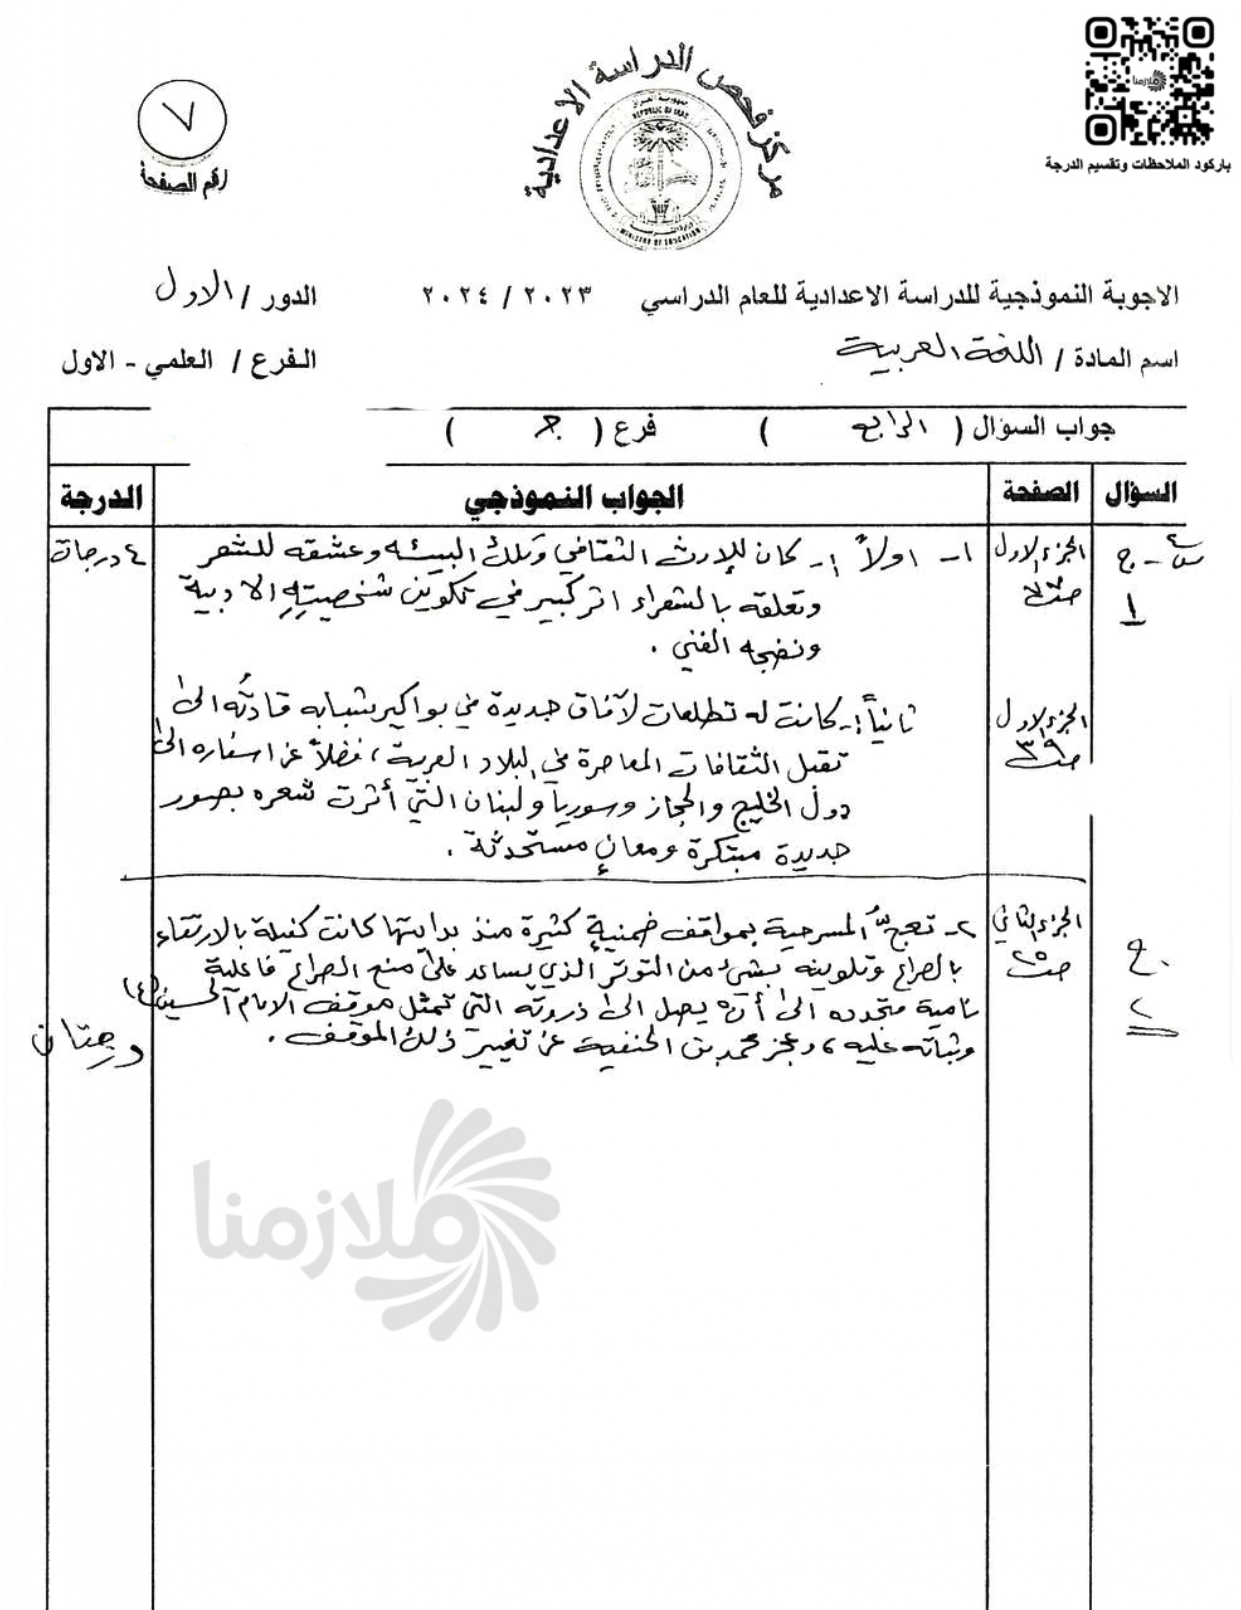 ملازمنا
باركود الملاحظات وتقسيم الدرجة
مركز فحص الدراسة الاعدادية
جمهورية العراق
REPUBLIC OF IRAQ
MINISTRY OF EDUCATION
٧
رقم الصفحة
الاجوبة النموذجية للدراسة الاعدادية للعام الدراسي ٢٠٢٣ / ٢٠٢٤ الدور / الاول
اسم المادة / اللغة العربية الفرع / العلمي - الاول
جواب السؤال ( الرابع ) فرع ( ج )
السؤال الصفحة الجواب النموذجي الدرجة
س٤ - ج الجزء الاول ١- اولاً :- كان للإرث الثقافي وتلك البيئه وعشقه للشعر ٤ درجات
١ وتعلقه بالشعراء اثر كبير في تكوين شخصيتهِ الادبية
ونضجه الفني .
الجزء الاول ثانياً :- كانت له تطلعات لآفاق جديدة في بواكير شبابه قادتُه الى
ص٣٩ تقبل الثقافات المعاصرة في البلاد العربية ، فضلاً عن اسفاره الى
دول الخليج والحجاز وسوريا ولبنان التي أثرت شعره بصور
جديدة مبتكرة ومعانٍ مستحدثة .
الجزء الثاني ٢- تعجُّ المسرحية بمواقف ضمنيةٍ كثيرة منذ بدايتها كانت كفيلة بالارتقاء
ج ص٢٥ بالصراع وتلوينه بشيء من التوتر الذي يساعد على منح الصراع فاعلية
٢ نامية متجدده الى أن يصل الى ذروته التي تمثل موقف الامام الحسين (ع)
وثباته عليه ، وعجز محمد بن الحنفية عن تغيير ذلك الموقف . درجتان
ملازمنا